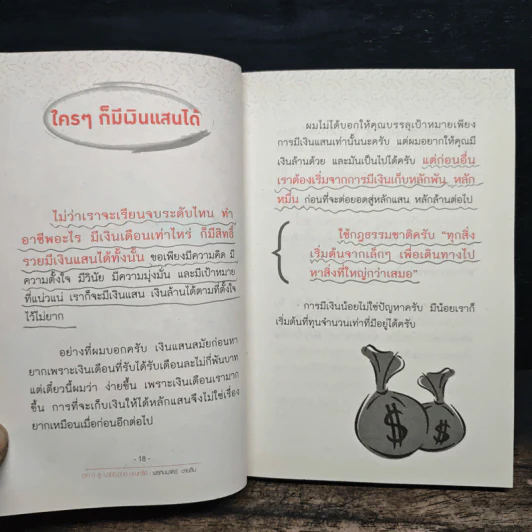 ใครๆ ก็มีเงินแสนได้
ไม่ว่าเราจะเรียนจบระดับไหน ทำ
อาชีพอะไร มีเงินเดือนเท่าไหร่ ก็มีสิทธิ์
รวยมีเงินแสนได้ทั้งนั้น ขอเพียงมีความคิด มี
ความตั้งใจ มีวินัย มีความมุ่งมั่น และมีเป้าหมาย
ที่แน่วแน่ เราก็จะมีเงินแสน เงินล้านได้ตามที่ตั้งใจ
ไว้ไม่ยาก
อย่างที่ผมบอกครับ เงินแสนสมัยก่อนหา
ยากเพราะเงินเดือนที่รับได้รับเดือนละไม่กี่พันบาท
แต่เดี๋ยวนี้ผมว่า ง่ายขึ้น เพราะเงินเดือนเรามาก
ขึ้น การที่จะเก็บเงินให้ได้หลักแสนจึงไม่ใช่เรื่อง
ยากเหมือนเมื่อก่อนอีกต่อไป
- 18 -
ผมไม่ได้บอกให้คุณบรรลุเป้าหมายเพียง
การมีเงินแสนเท่านั้นนะครับ แต่ผมอยากให้คุณมี
เงินล้านด้วย และมันเป็นไปได้ครับ แต่ก่อนอื่น
เราต้องเริ่มจากการมีเงินเก็บหลักพัน หลัก
หมื่น ก่อนที่จะต่อยอดสู่หลักแสน หลักล้านต่อไป
ใช้กฎธรรมชาติครับ "ทุกสิ่ง
เริ่มต้นจากเล็กๆ เพื่อเดินทางไป
หาสิ่งที่ใหญ่กว่าเสมอ"
การมีเงินน้อยไม่ใช่ปัญหาครับ มีน้อยเราก็
เริ่มต้นที่ทุนจำนวนเท่าที่มีอยู่ได้ครับ
$
$